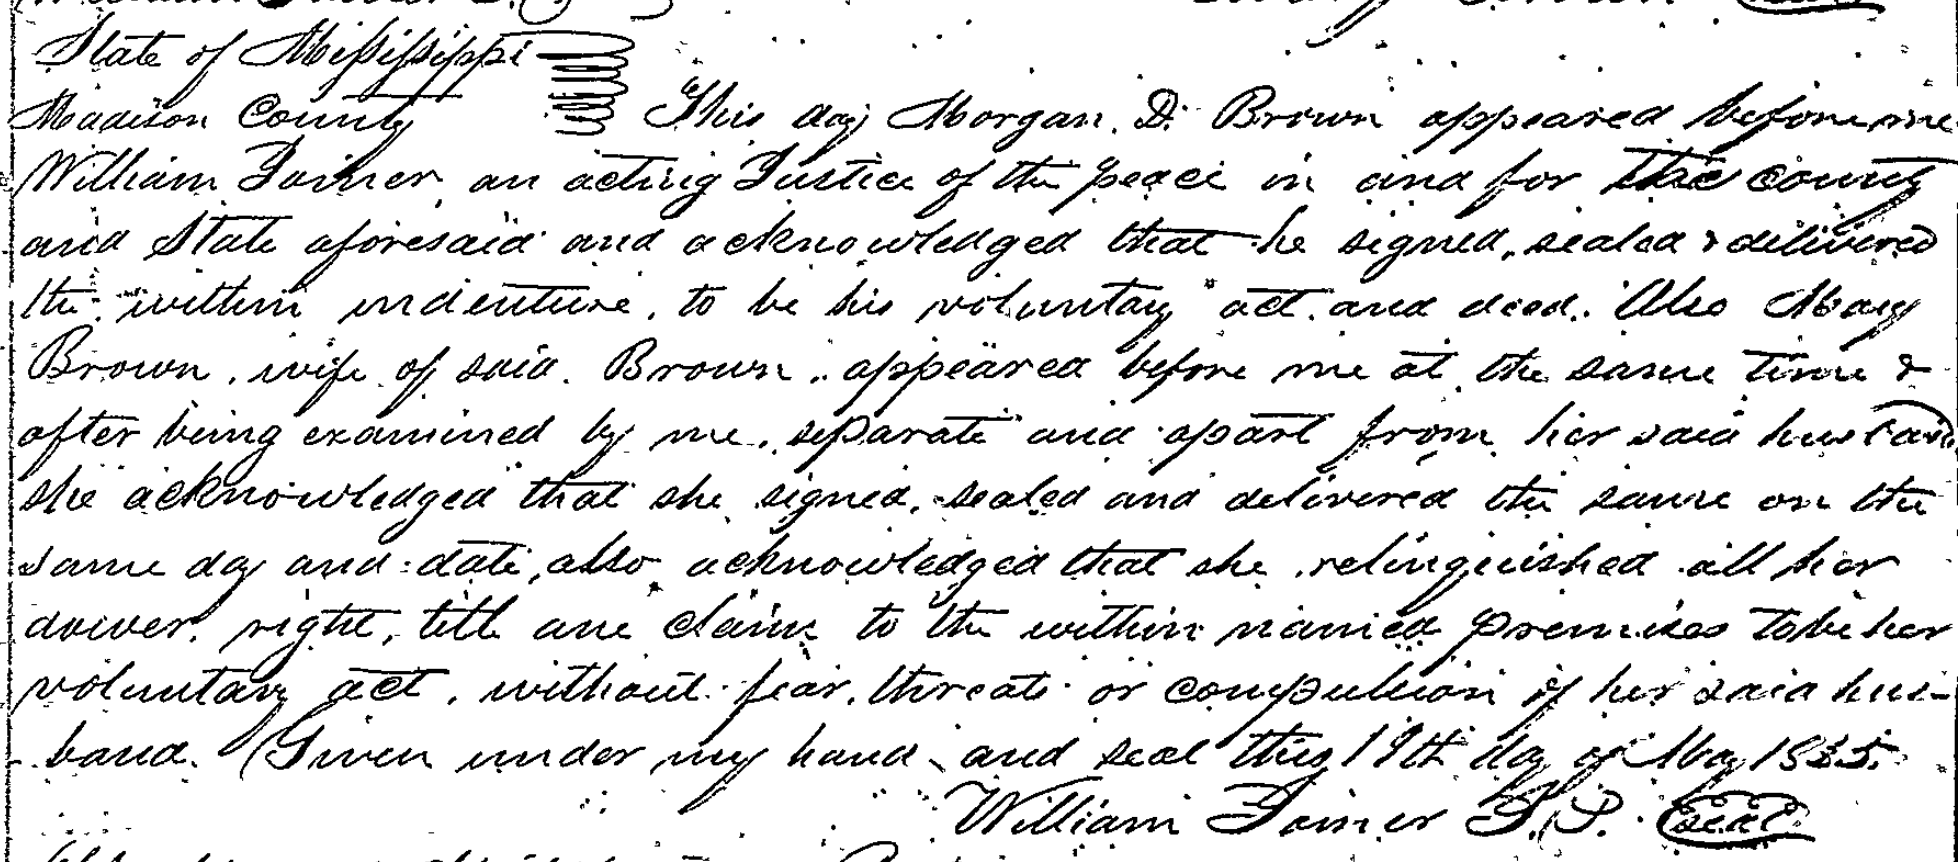 State of Mississippi
Madison County This day Morgan. D. Brown appeared before me
William Joiner an acting Justice of the peace in and for the county
and State aforesaid and acknowledged that he signed, sealed & delivered
the within indenture, to be his voluntary act and deed. Also Mary
Brown, wife of said Brown, appeared before me at the same time &
after being examined by me, separate and apart from her said husband
she acknowledged that she signed, sealed and delivered the same on the
same day and date, also acknowledged that she relinquished all her
dower, right, title and claim to the within named premises to be her
voluntary act, without fear, threats or compulsion of her said hus-
-band. Given under my hand and seal this 19th day of May 1835.
William Joiner J.P. Seal